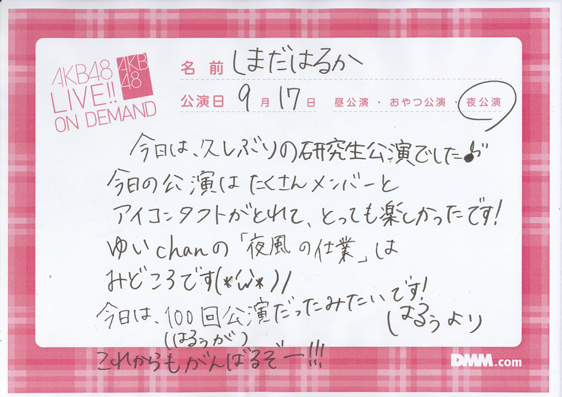 AKB48
LIVE!!
ON DEMAND
AKB
48
名前 しまだはるか
公演日 9月17日 昼公演・おやつ公演・夜公演
今日は、久しぶりの研究生公演でした♪
今日の公演はたくさんメンバーと
アイコンタクトがとれて、とっても楽しかったです!
ゆいchanの「夜風の仕業」は
みどころです(*'ω'*)/
今日は、100回公演だったみたいです!
(はるぅが)
はるぅより
これからもがんばるぞー!!!
DMM.com